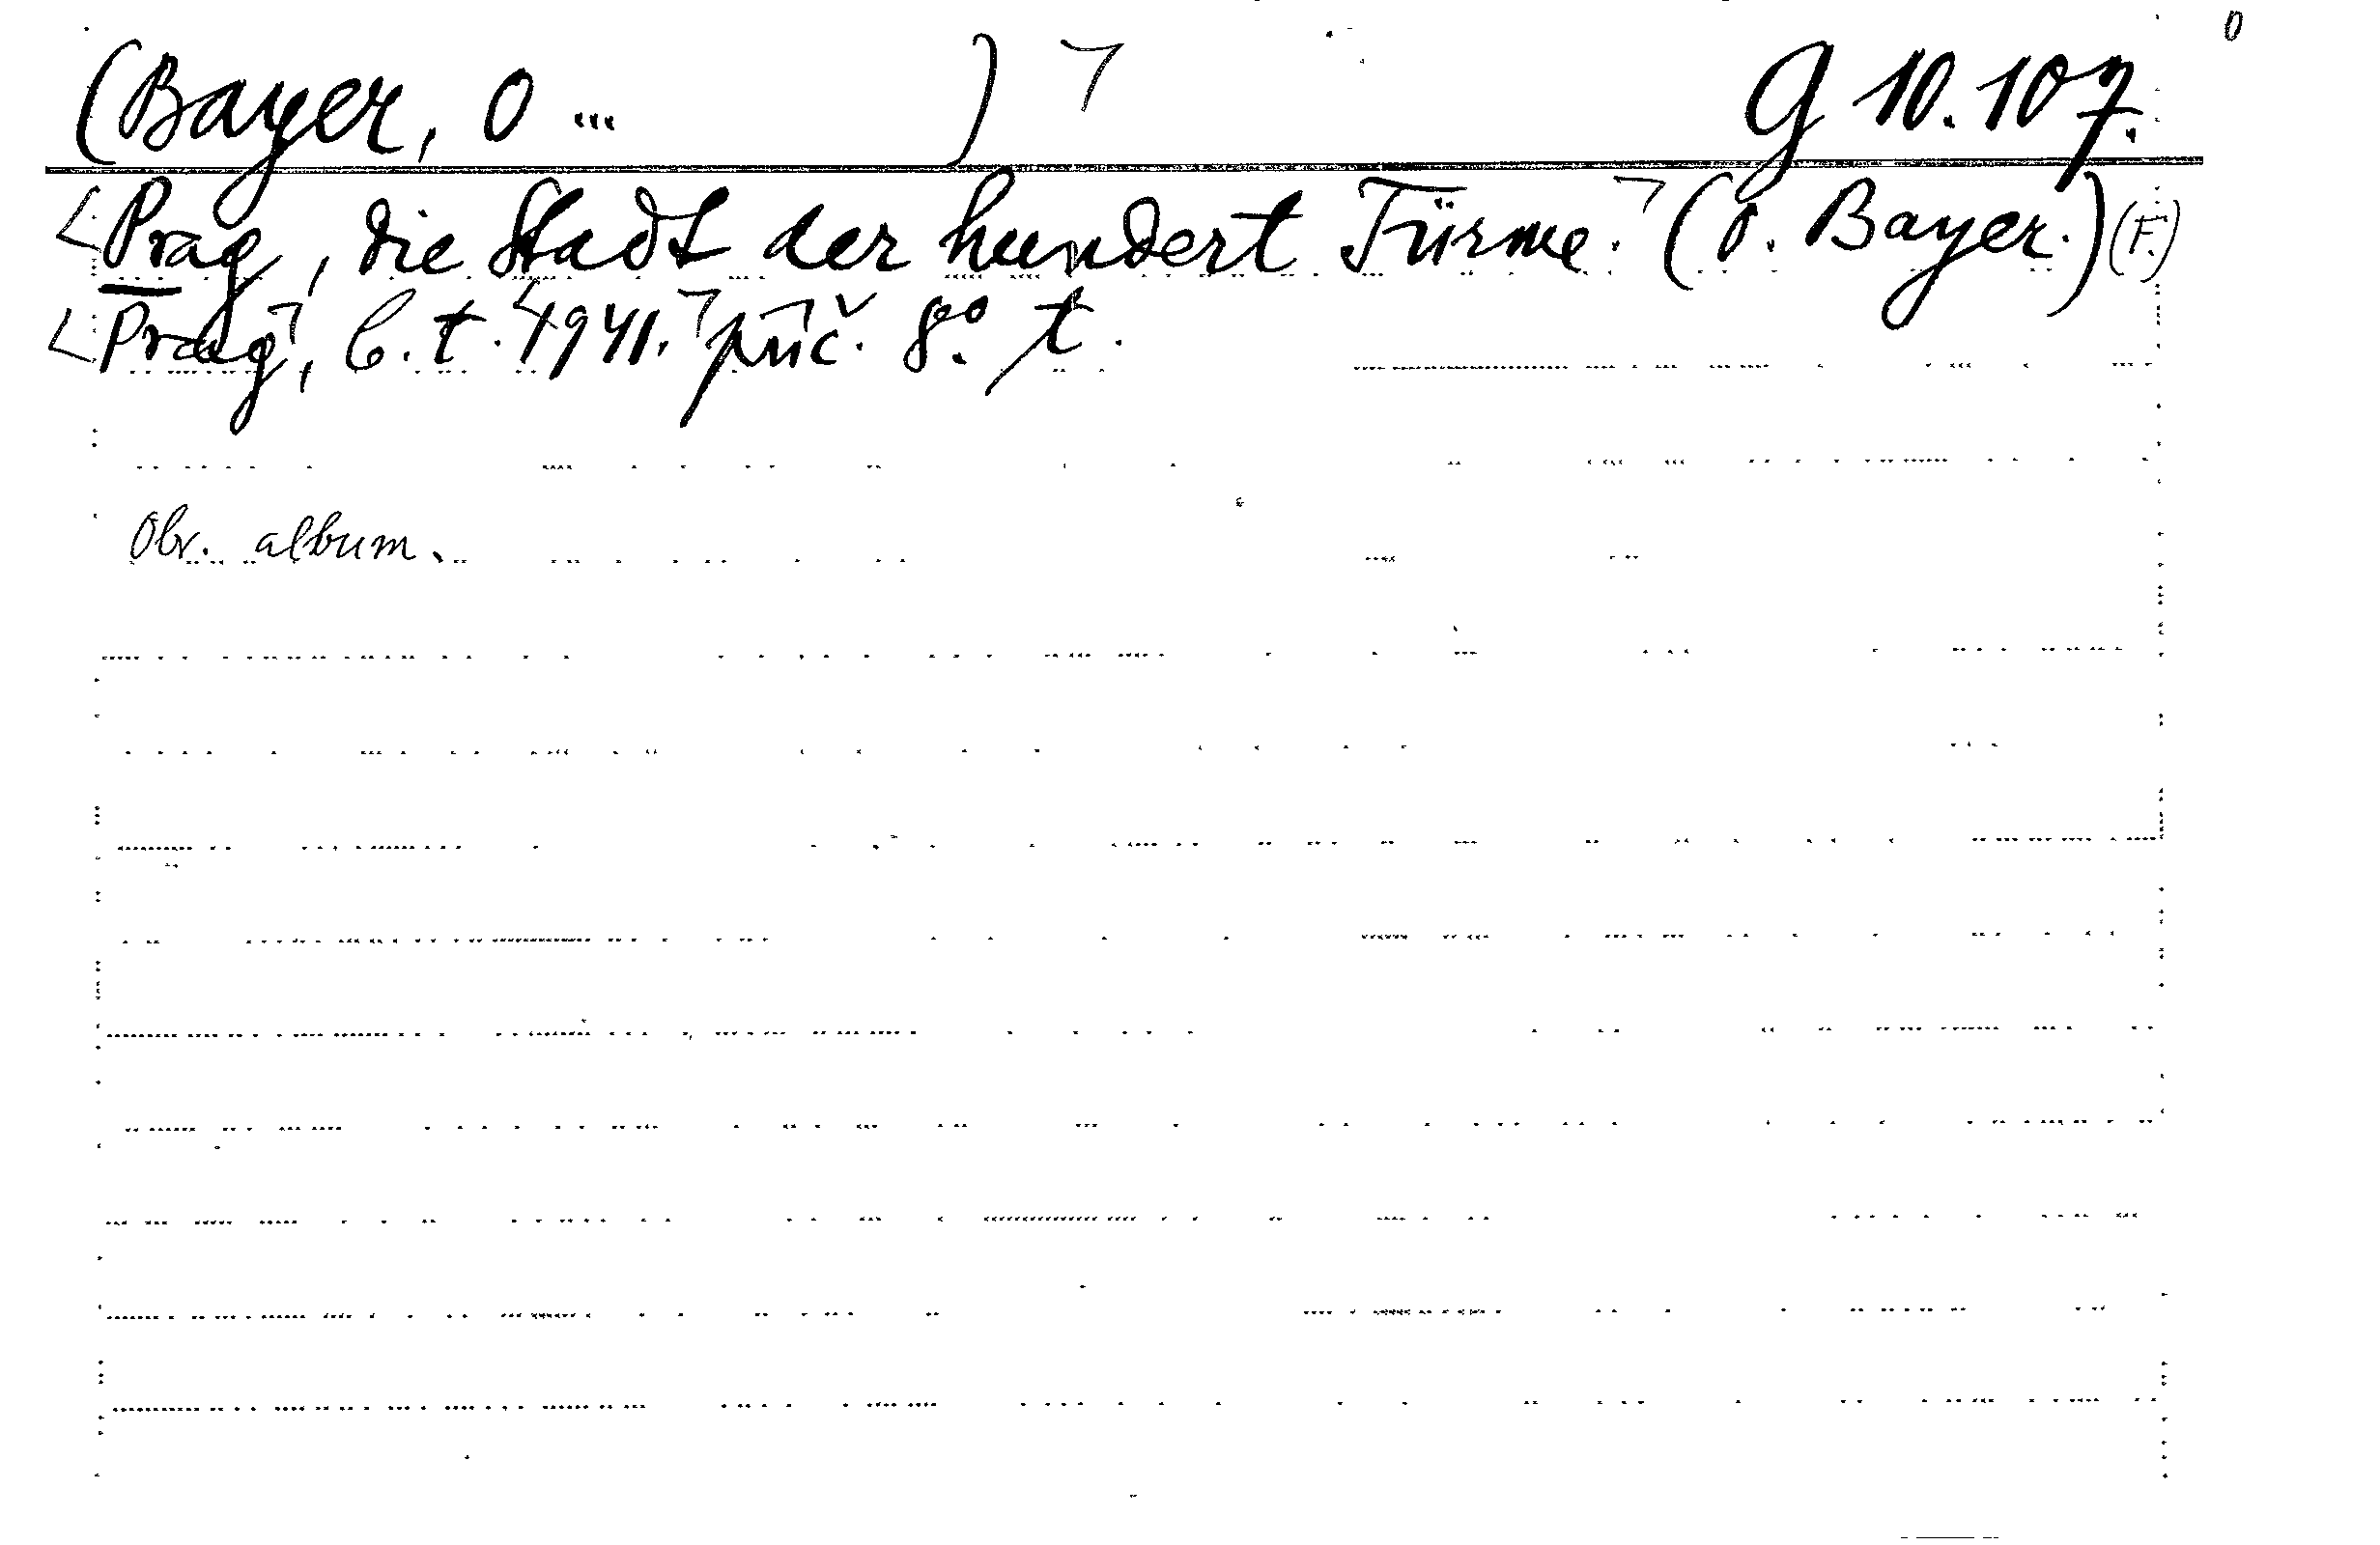 (Bayer, O ... ) G 10.107.
Prag, die Stadt der hundert Türme. (O. Bayer.) (F.)
Prag, b.t. 1941. příč. 8° t.
Obr. album.